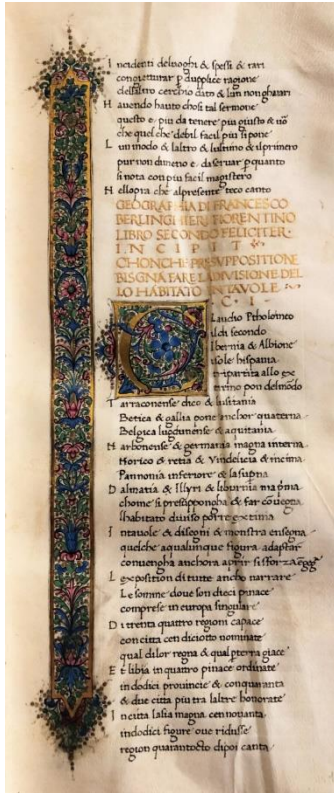 I ncidenti deluoghi & spessi & rari
congietturar p dupplice ragione
dellaltro cerchio dato & lun non ghauri
H auendo hauto chosi tal sermone
questo e piu da tenere piu giusto & nō
che quel che debil facil piu si pone
L un modo & laltro & lultimo & ilprimero
pur non dimeno e daseruar pquanto
si nota con piu facil magistero
N ellopra che alpresente teco canto
GEOGRAPHIA DI FRANCESCO
BERLINGHIERI FIORENTINO
LIBRO SECONDO FELICITER
INCIPIT
CHONCHE PRESVPPOSITIONE
BISGNA FARE LA DIVISIONE DEL
LO HABITATO INTAVOLE
C · I ·
C Laudio Ptholomeo
il di secondo
Ibernia & Albione
isole hispania
tripartita allo ex
trino pon delmōdo
T arraconense dico & lusitania
Betica & gallia pone anchor quaterna
Belgica lugdunense & aquitania
N arbonense & germania magna interna
Norico & retia & Vindelicia & incima
Pannonia inferiore & lasupna
D almatia & Illyri & liburnia magna
chome si presuppongha & far couegna
lhabitato diuiso porre extima
I ntauole & disegni & monstra ensegna
quelche aqualunque figura adaptar
conuengha anchora aprir si sforza
L exposition di tutte ancho narrare
Le somme doue son dieci pinace
comprese in europa singulare
D i trenta quattro regioni capace
con citta cen diciotto nominate
qual dilor regna & qual perterra giace
E t libia in quattro pinace ordinate
indodici prouincie & con quaranta
& due citta piu tra laltre honorate
I n cuta lasia magna cen nouanta
indodici figure oue ridusse
region quarantocto dipoi canta